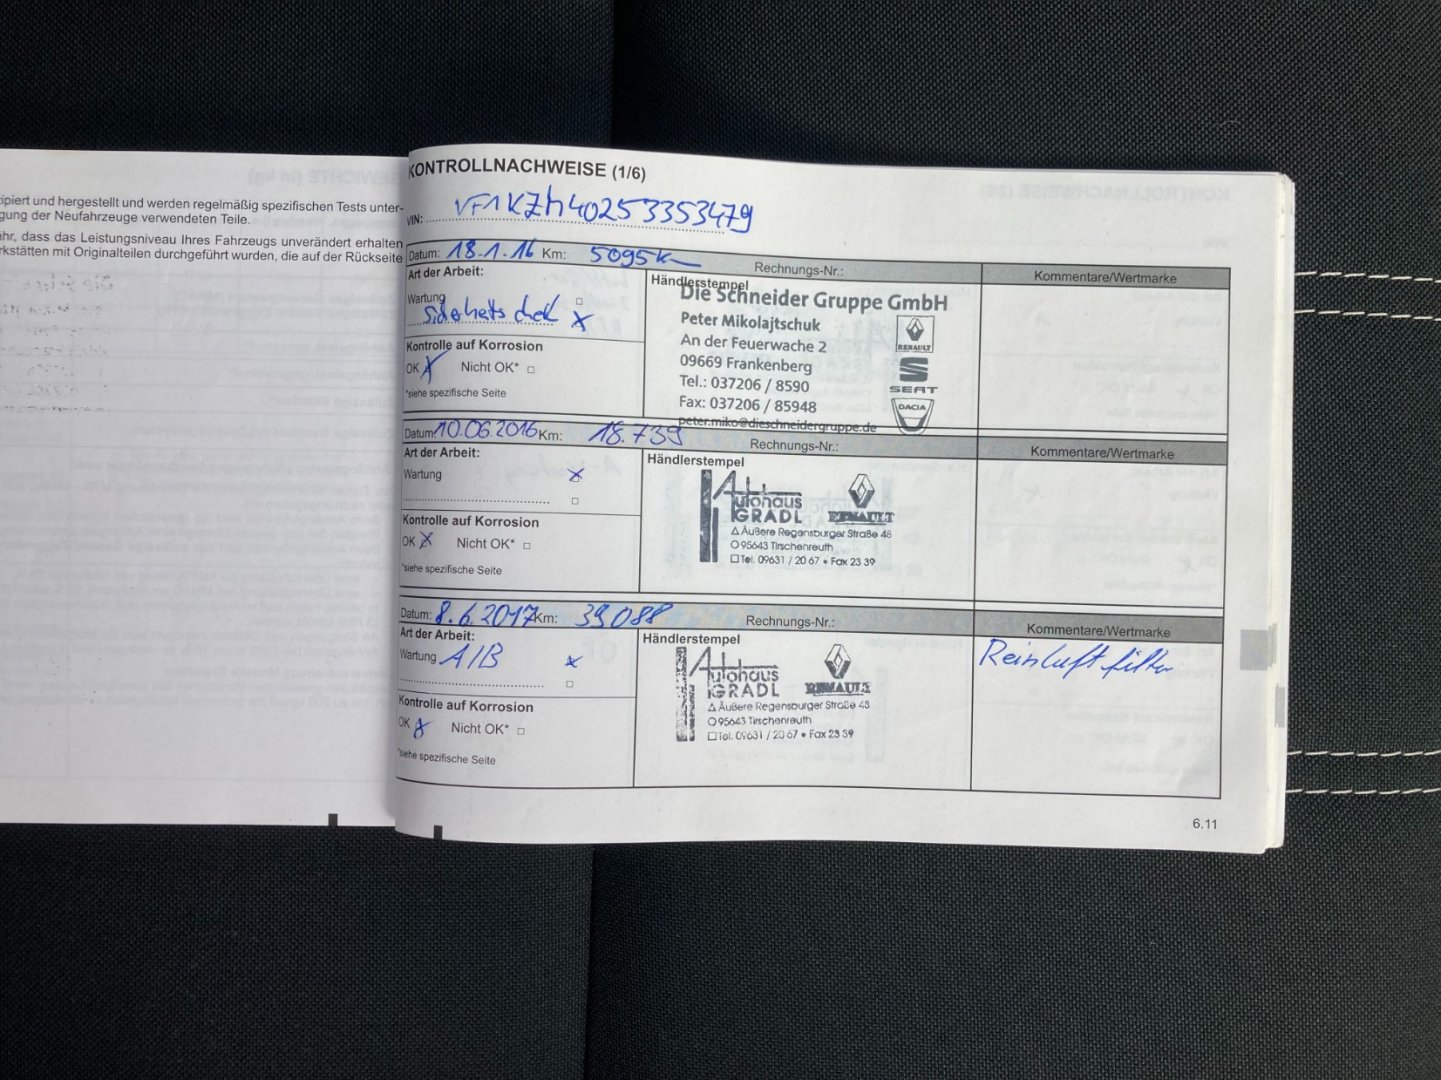 zipiert und hergestellt und werden regelmäßig spezifischen Tests unter-
gung der Neufahrzeuge verwendeten Teile.
ahr, dass das Leistungsniveau Ihres Fahrzeugs unverändert erhalten
rkstätten mit Originalteilen durchgeführt wurden, die auf der Rückseite
KONTROLLNACHWEISE (1/6)
VIN: VF1KZM40253353479
Datum: 18.1.16 Km: 5095 Rechnungs-Nr.: Kommentare/Wertmarke
Art der Arbeit:
Wartung
Händlerstempel
Die Schneider Gruppe GmbH
Peter Mikolajtschuk
An der Feuerwache 2
09669 Frankenberg
Tel.: 037206 / 8590
Fax: 037206 / 85948
peter.miko@dieschneidergruppe.de
RENAULT
SEAT
DACIA
Kontrolle auf Korrosion
OK X Nicht OK*
*siehe spezifische Seite
Datum: 10.06.2016 Km: 18.739 Rechnungs-Nr.: Kommentare/Wertmarke
Art der Arbeit:
Wartung X
Händlerstempel
Autohaus
GRADL
RENAULT
Äußere Regensburger Straße 48
95643 Tirschenreuth
Tel. 09631 / 20 67 • Fax 23 39
Kontrolle auf Korrosion
OK X Nicht OK*
*siehe spezifische Seite
Datum: 8.6.2017 Km: 39088 Rechnungs-Nr.: Kommentare/Wertmarke
Art der Arbeit:
Wartung A/B X
Händlerstempel
Autohaus
GRADL
RENAULT
Äußere Regensburger Straße 48
95643 Tirschenreuth
Tel. 09631 / 20 67 • Fax 23 39
Kontrolle auf Korrosion
OK X Nicht OK*
*siehe spezifische Seite
6.11